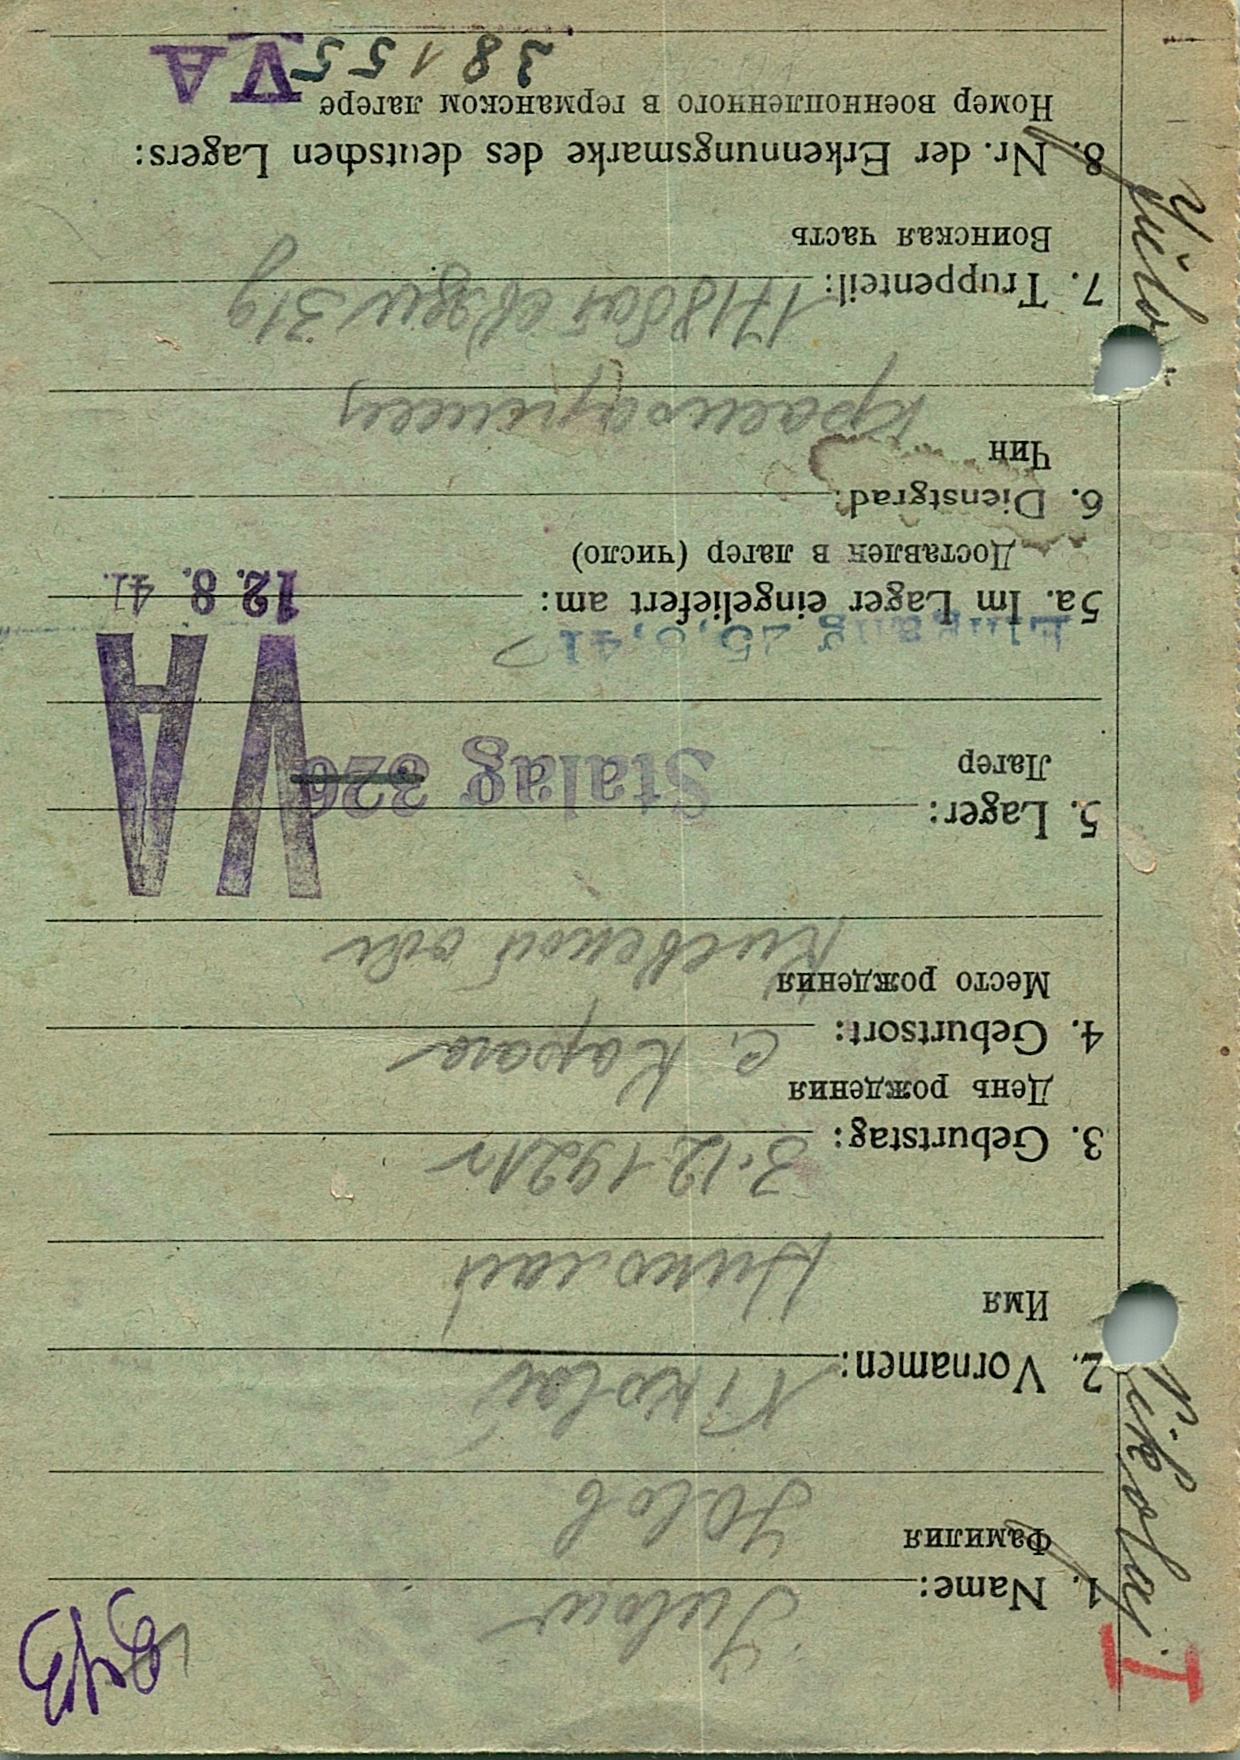 I
1. Name: Julow
Фамилия Юлов
2. Vornamen: Nikolai
Имя Николай
3. Geburtstag: 3.12 1921 г
День рождения
4. Geburtsort: с.
Место рождения Киевской обл
5. Lager: Stalag 326 VA
Лагерь
5a. Im Lager eingeliefert am: 12. 8. 41
Eingang 25, 8, 41
Доставлен в лагер (число)
6. Dienstgrad:
Чин Красноармеец
7. Truppenteil:
Воинская часть
8. Nr. der Erkennungsmarke des deutschen Lagers:
Номер военнопленного в германском лагере
38155 VA
Nikolai